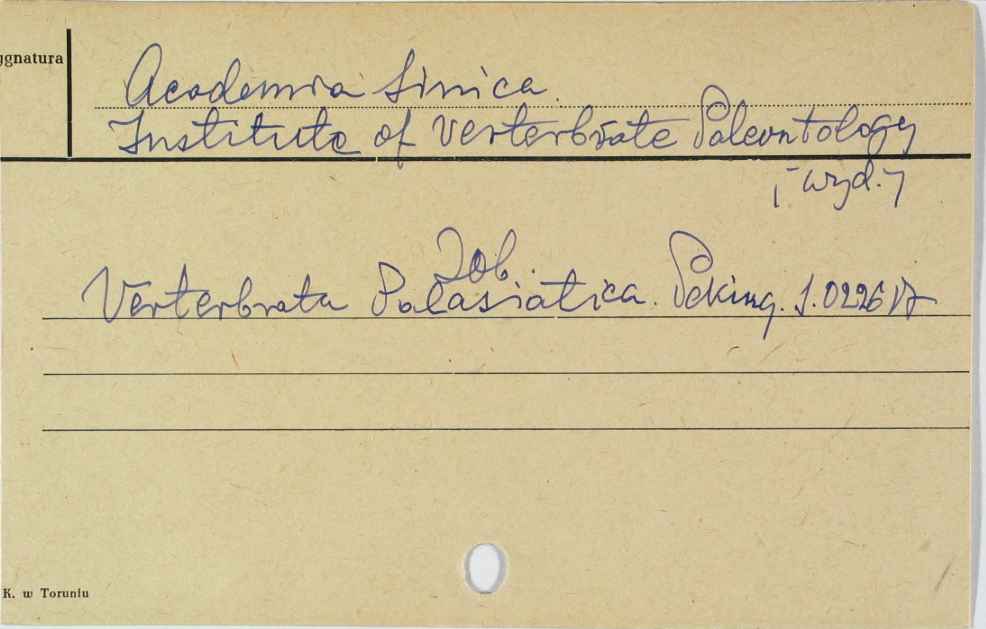 ygnatura
Academia Sinica.
Institute of Verterbrate Paleontology
[wyd.]
Zob.
Verterbrata Palasiatica. Peking. S.0226 IV
K. w Toruniu